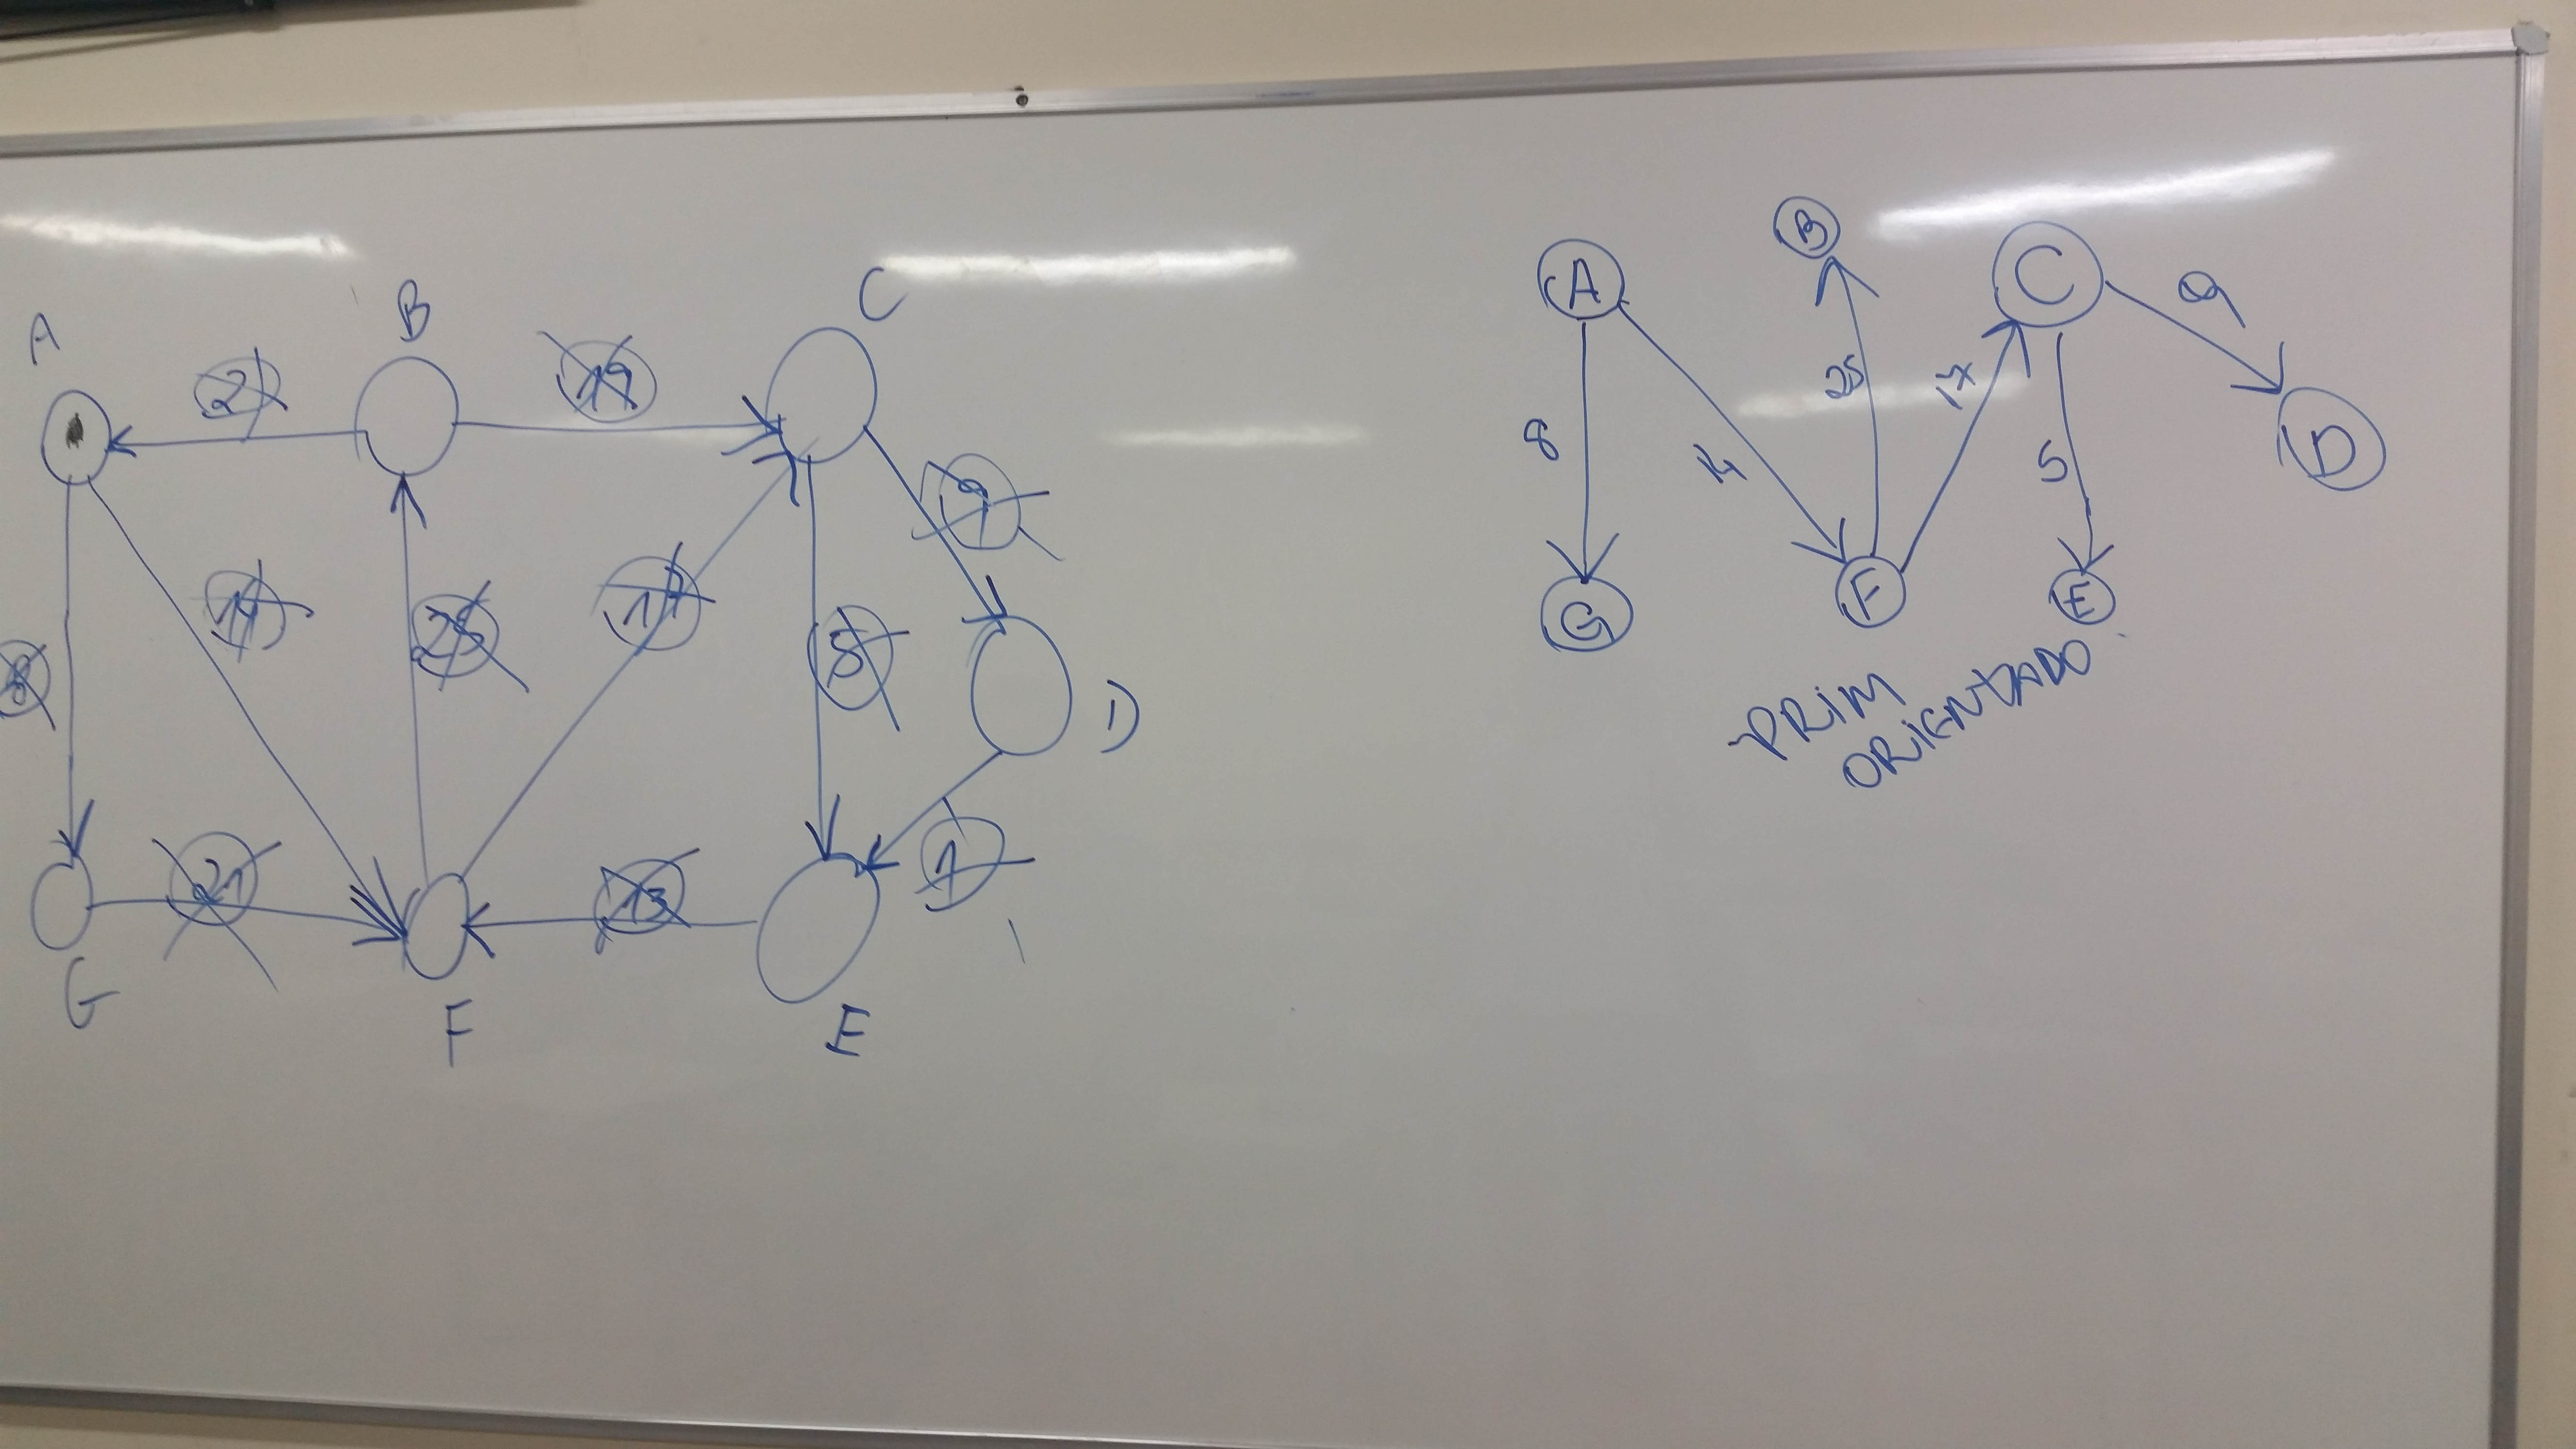 A
B
C
2
19
9
14
25
17
5
8
D
21
13
1
G
F
E
A
B
C
9
8
14
25
17
5
D
G
F
E
PRIM
ORIENTADO